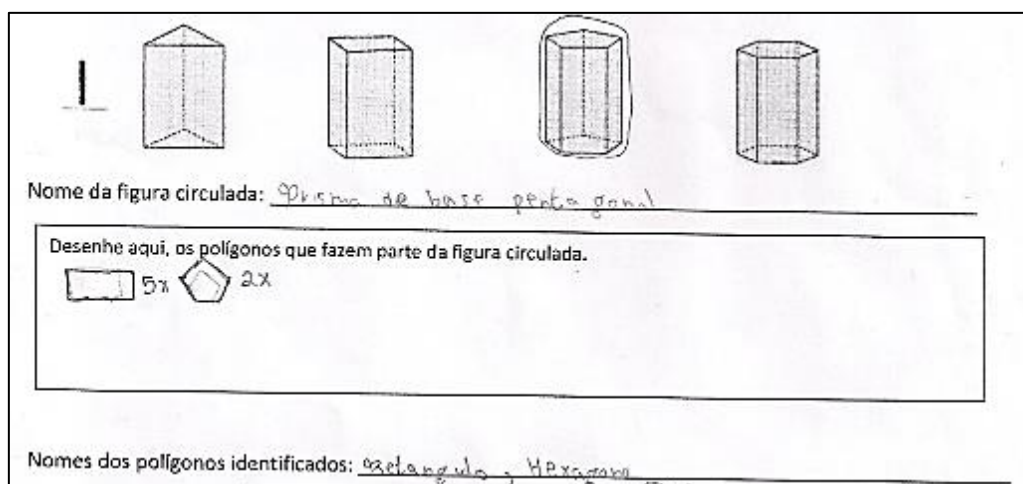 Nome da figura circulada: Prisma de base pentagonal
Desenhe aqui, os polígonos que fazem parte da figura circulada.
5x 2x
Nomes dos polígonos identificados: retangulo, Hexagono